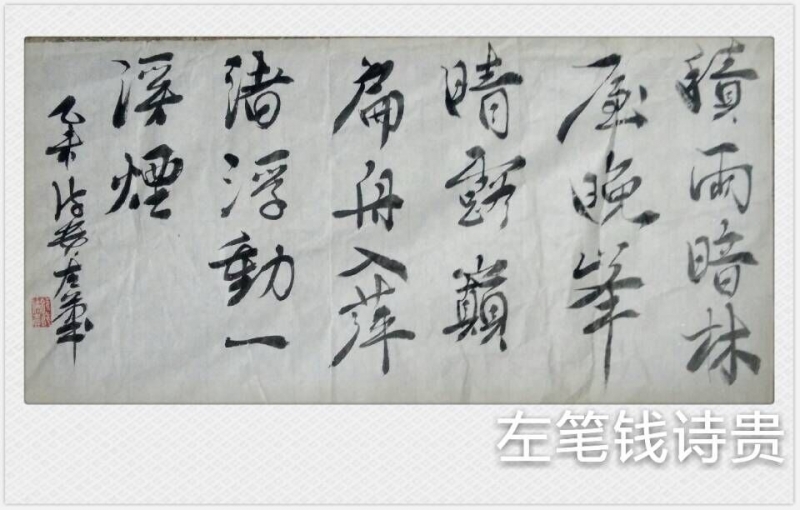 積雨暗林
屋晚峯
晴露巔
扁舟入萍
渚浮動一
渓煙
乙未诗贵左筆
左笔钱诗贵